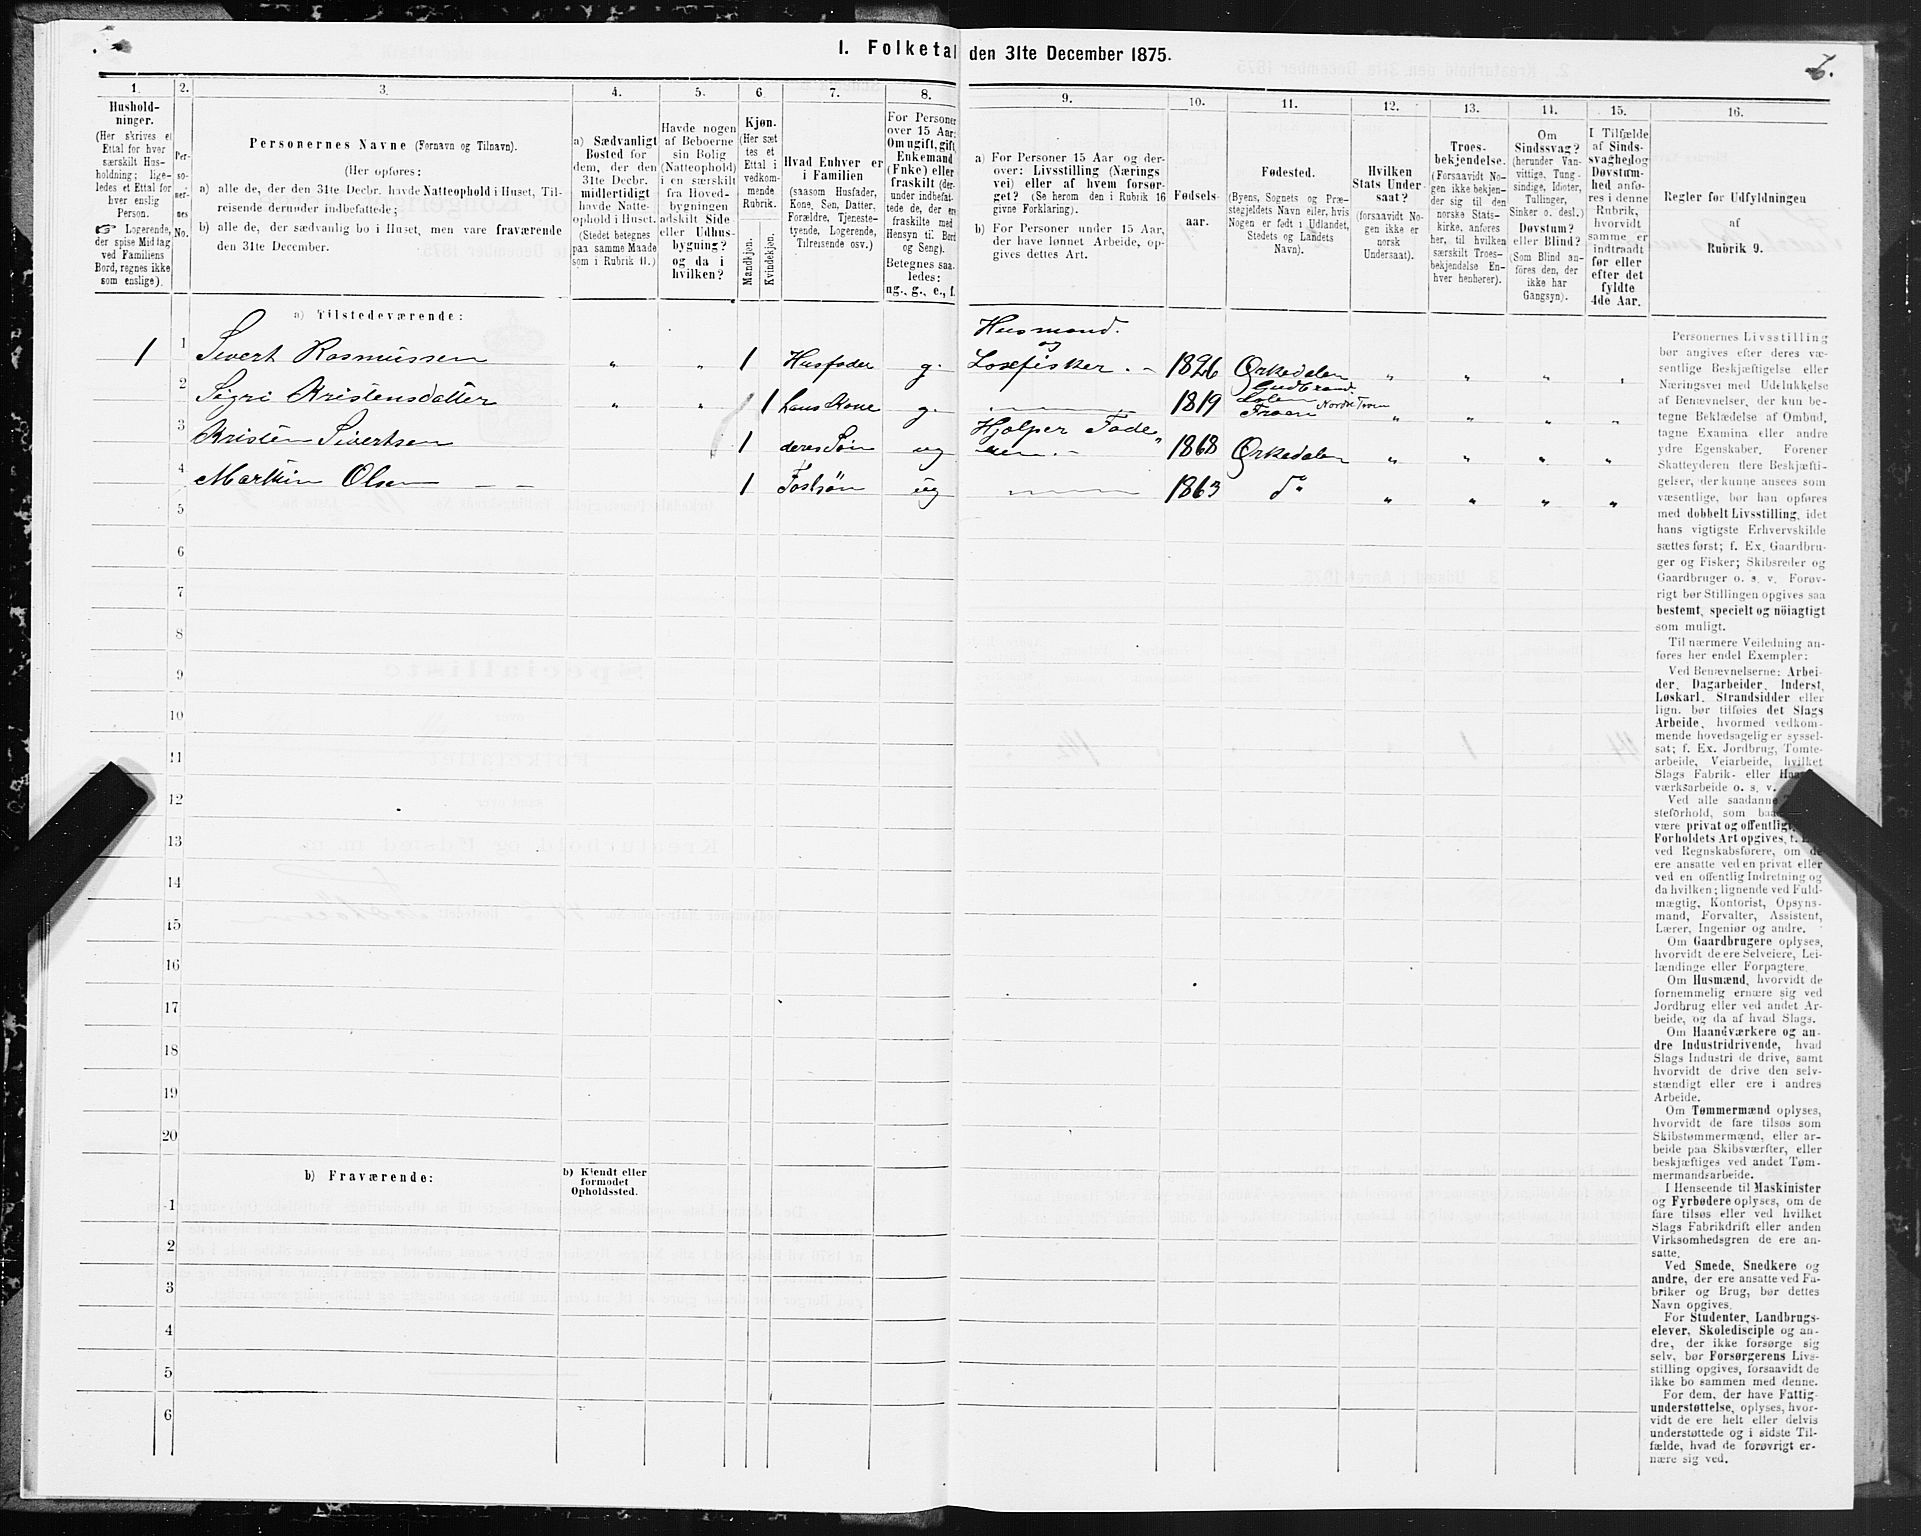 I. Folketal den 31te December 1875.
1. 2. 3. 4. 5. 6. 7. 8. 9. 10. 11. 12. 13. 14. 15. 16.
Hushold-
ninger.
(Her skrives et
Ettal for hver
særskilt Hus-
holdning; lige-
ledes et Ettal for
hver enslig
Person.
Logerende,
der spise Middag
ved Familiens
Bord, regnes ikke
som enslige).
Per-
so-
ner-
nes
No.
Personernes Navne (Fornavn og Tilnavn).
(Her opføres:
a) alle de, der den 31te Decbr. havde Natteophold i Huset, Til-
reisende derunder indbefattede;
b) alle de, der sædvanlig bo i Huset, men vare fraværende
den 31te December.
a) Sædvanligt
Bosted for
dem, der den
31te Decbr.
midlertidigt
havde Natte-
ophold i Huset.
(Stedet betegnes
paa samme Maade
som i Rubrik 11.)
Havde nogen
af Beboerne
sin Bolig
(Natteophold)
i en særskilt
fra Hoved-
bygningen
adskilt Side-
eller Udhus-
bygning?
og da i
hvilken?
Kjøn.
(Her sæt
tes et
Ettal i
vedkom-
mende
Rubrik.
Mandkjøn.
Kvindekjøn.
Hvad Enhver er
i Familien
(saasom Husfader,
Kone, Søn, Datter,
Forældre, Tjeneste-
tyende, Logerende,
Tilreisende osv.)
For Personer
over 15 Aar:
Om ugift, gift,
Enkemand
(Enke) eller
fraskilt (der-
under indbefat-
tede de, der ere
fraskilte med
Hensyn til Bord
og Seng).
Betegnes saa-
ledes:
ug., g., e., f.
a) For Personer 15 Aar og der-
over: Livsstilling (Nærings
vei) eller af hvem forsør-
get? (Se herom den i Rubrik 16
givne Forklaring).
b) For Personer under 15 Aar,
der have lønnet Arbeide, op-
gives dettes Art.
Fødsels-
aar.
Fødested.
(Byens, Sognets og Præ-
stegjeldets Navn eller, hvis
Nogen er født i Udlandet,
Stedets og Landets
Navn).
Hvilken
Stats Under-
saat?
(forsaavidt No-
gen ikke er
norsk
Undersaat).
Troes-
bekjendelse.
(Forsaavidt No-
gen ikke bekjen-
der sig til den
norske Stats-
kirke, anføres
her, til hvilken
særskilt Troes-
bekjendelse En-
hver henhører).
Om
Sindssvag?
(herunder Van-
vittige, Tung-
sindige, Idioter,
Tullinger,
Sinker o. desl.)
Døvstum?
eller Blind?
(Som Blind an-
føres den, der
ikke har
Gangsyn).
I Tilfælde
af Sinds-
svaghed og
Døvstum-
hed anfø-
res i denne
Rubrik,
hvorvidt
samme er
indtraadt
før eller
efter det
fyldte
4de Aar.
Regler for Udfyldningen
af
Rubrik 9.
a) Tilstedeværende:
Husmand.
og
1 1 Sivert Rasmussen " " 1 Husfader g. Losefisker. – 1826 Orkedalen " " " "
2 Sigri Kristensdatter " " 1 hans Kone g. 1819 " " " "
3 Kristen Sivertsen 1 deres Søn ug Hjælper Fade- 1868 Orkedalen " " " "
4 Martin Olsen – – 1 Fostsøn ug 1863 do " " " "
5
6
7
8
9
10
11
12
13
14
15
16
17
18
19
20
b) Fraværende:
b) Kjendt eller
formodet
Opholdssted.
1
2
3
4
5
6
Personernes Livsstilling
bør angives efter deres væ-
sentlige Beskjæftigelse eller
Næringsvei med Udelukkelse
af Benævnelser, der kun be-
tegne Beklædelse af Ombud,
tagne Examina eller andre
ydre Egenskaber. Forener
Skatteyderen flere Beskjæfti-
gelser, der kunne ansees som
væsentlige, bør han opføres
med dobbelt Livsstilling, idet
hans vigtigste Erhvervskilde
sættes først; f. Ex. Gaardbru-
ger og Fisker; Skibsreder og
Gaardbruger o. s. v. Forøv-
rigt bør Stillingen opgives saa
bestemt, specielt og nöiagtigt
som muligt.
Til nærmere Veiledning an-
føres her endel Exempler:
Ved Benævnelserne: Arbei-
der, Dagarbeider, Inderst,
Løskarl, Strandsidder eller
lign. bør tilføies det Slags
Arbeide, hvormed vedkom-
mende hovedsagelig er syssel-
sat; f. Ex. Jordbrug, Tomte-
arbeide, Veiarbeide, hvilket
Slags Fabrik- eller
værksarbeide o. s. v.
Ved alle saadanne
steforhold, som
være privat og offentlig,
Forholdets Art opgives, t.
ved Regnskabsførere, om de
ere ansatte ved en privat eller
ved en offentlig Indretning og
da hvilken; lignende ved Fuld-
mægtig, Kontorist, Opsyns-
mand, Forvalter, Assistent,
Lærer, Ingeniør og andre.
Om Gaardbrugere oplyses,
hvorvidt de ere Selveiere, Lei-
lændinge eller Forpagtere.
Om Husmænd, hvorvidt de
fornemmelig ernære sig ved
Jordbrug eller ved andet Ar-
beide, og da af hvad Slags.
Om Haandværkere og an-
dre Industridrivende, hvad
Slags Industri de drive, samt
hvorvidt de drive den selv-
stændigt eller ere i andres
Arbeide.
Om Tømmermænd oplyses,
hvorvidt de fare tilsøs som
Skibstømmermænd, eller ar-
beide paa Skibsværfter, eller
beskjæftiges ved andet Tøm-
mermandsarbeide.
I Henseende til Maskinister
og Fyrbødere oplyses, om de
fare tilsøs eller ved hvilket
Slags Fabrikdrift eller anden
Virksomhedsgren de ere an-
satte.
Ved Smede, Snedkere og
andre, der ere ansatte ved Fa-
briker og Brug, bør dettes
Navn opgives.
For Studenter, Landbrugs-
elever, Skoledisciple og an-
dre, der ikke forsørge sig
selv, bør Forsørgerens Livs-
stilling opgives, forsaavidt de
ikke bo sammen med denne.
For dem, der have Fattig-
understøttelse, oplyses, hvor-
vidt de ere helt eller delvis
understøttede og i sidste Til-
fælde, hvad de forøvrigt er-
nære sig ved.